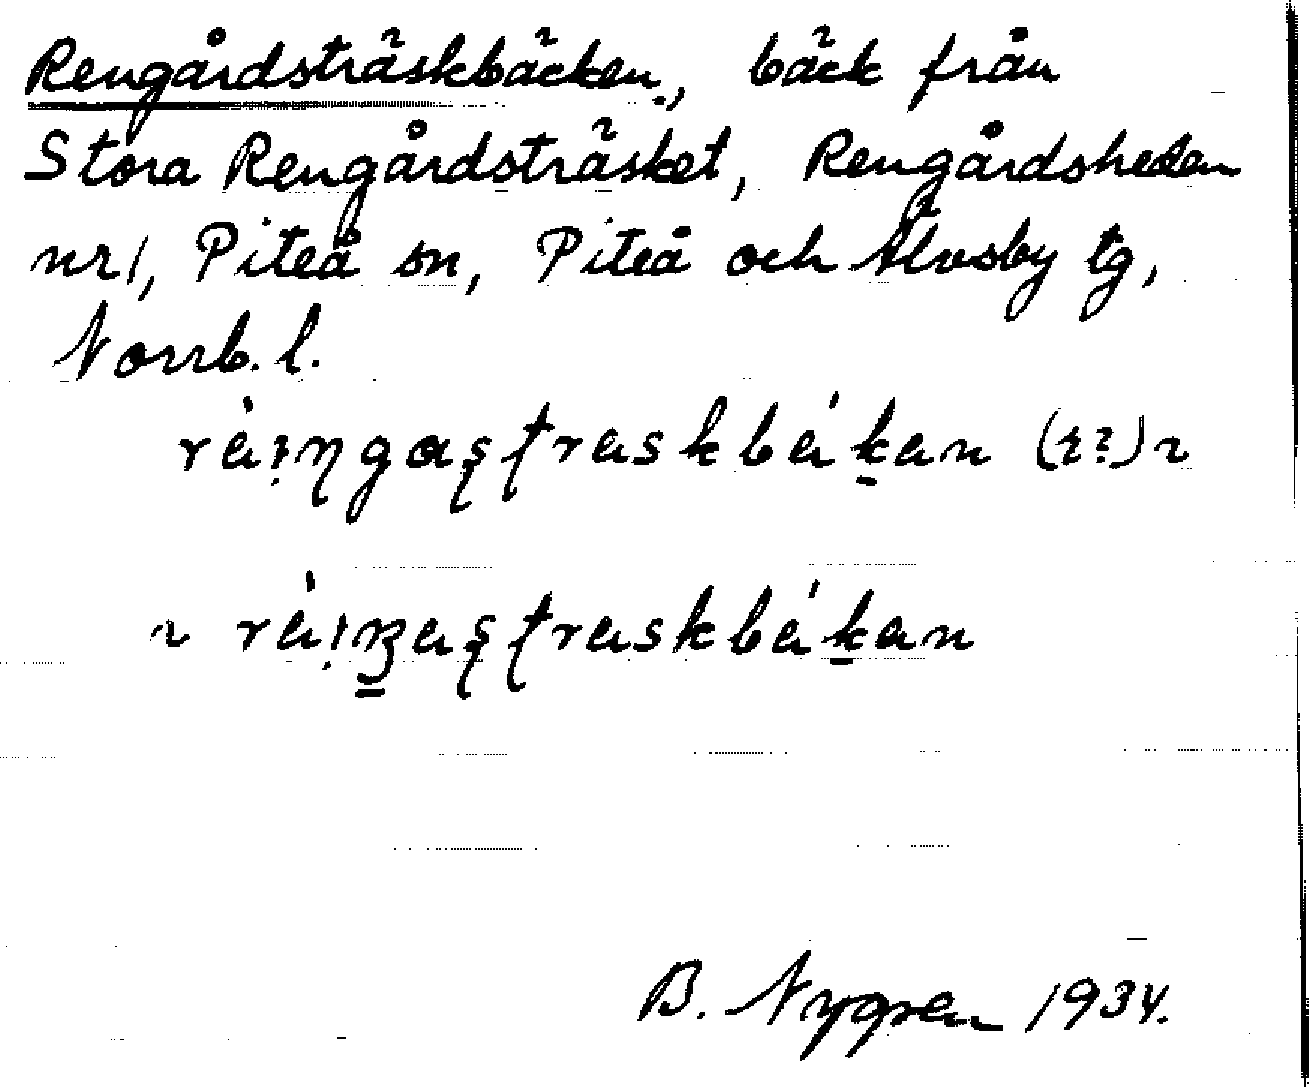 Rengårdsträskbäcken, bäck från
Stora Rengårdsträsket, Rengårdsheden
nr 1, Piteå sn, Piteå och Älvsby tg,
Norrb. l.
B. Nygren 1934.